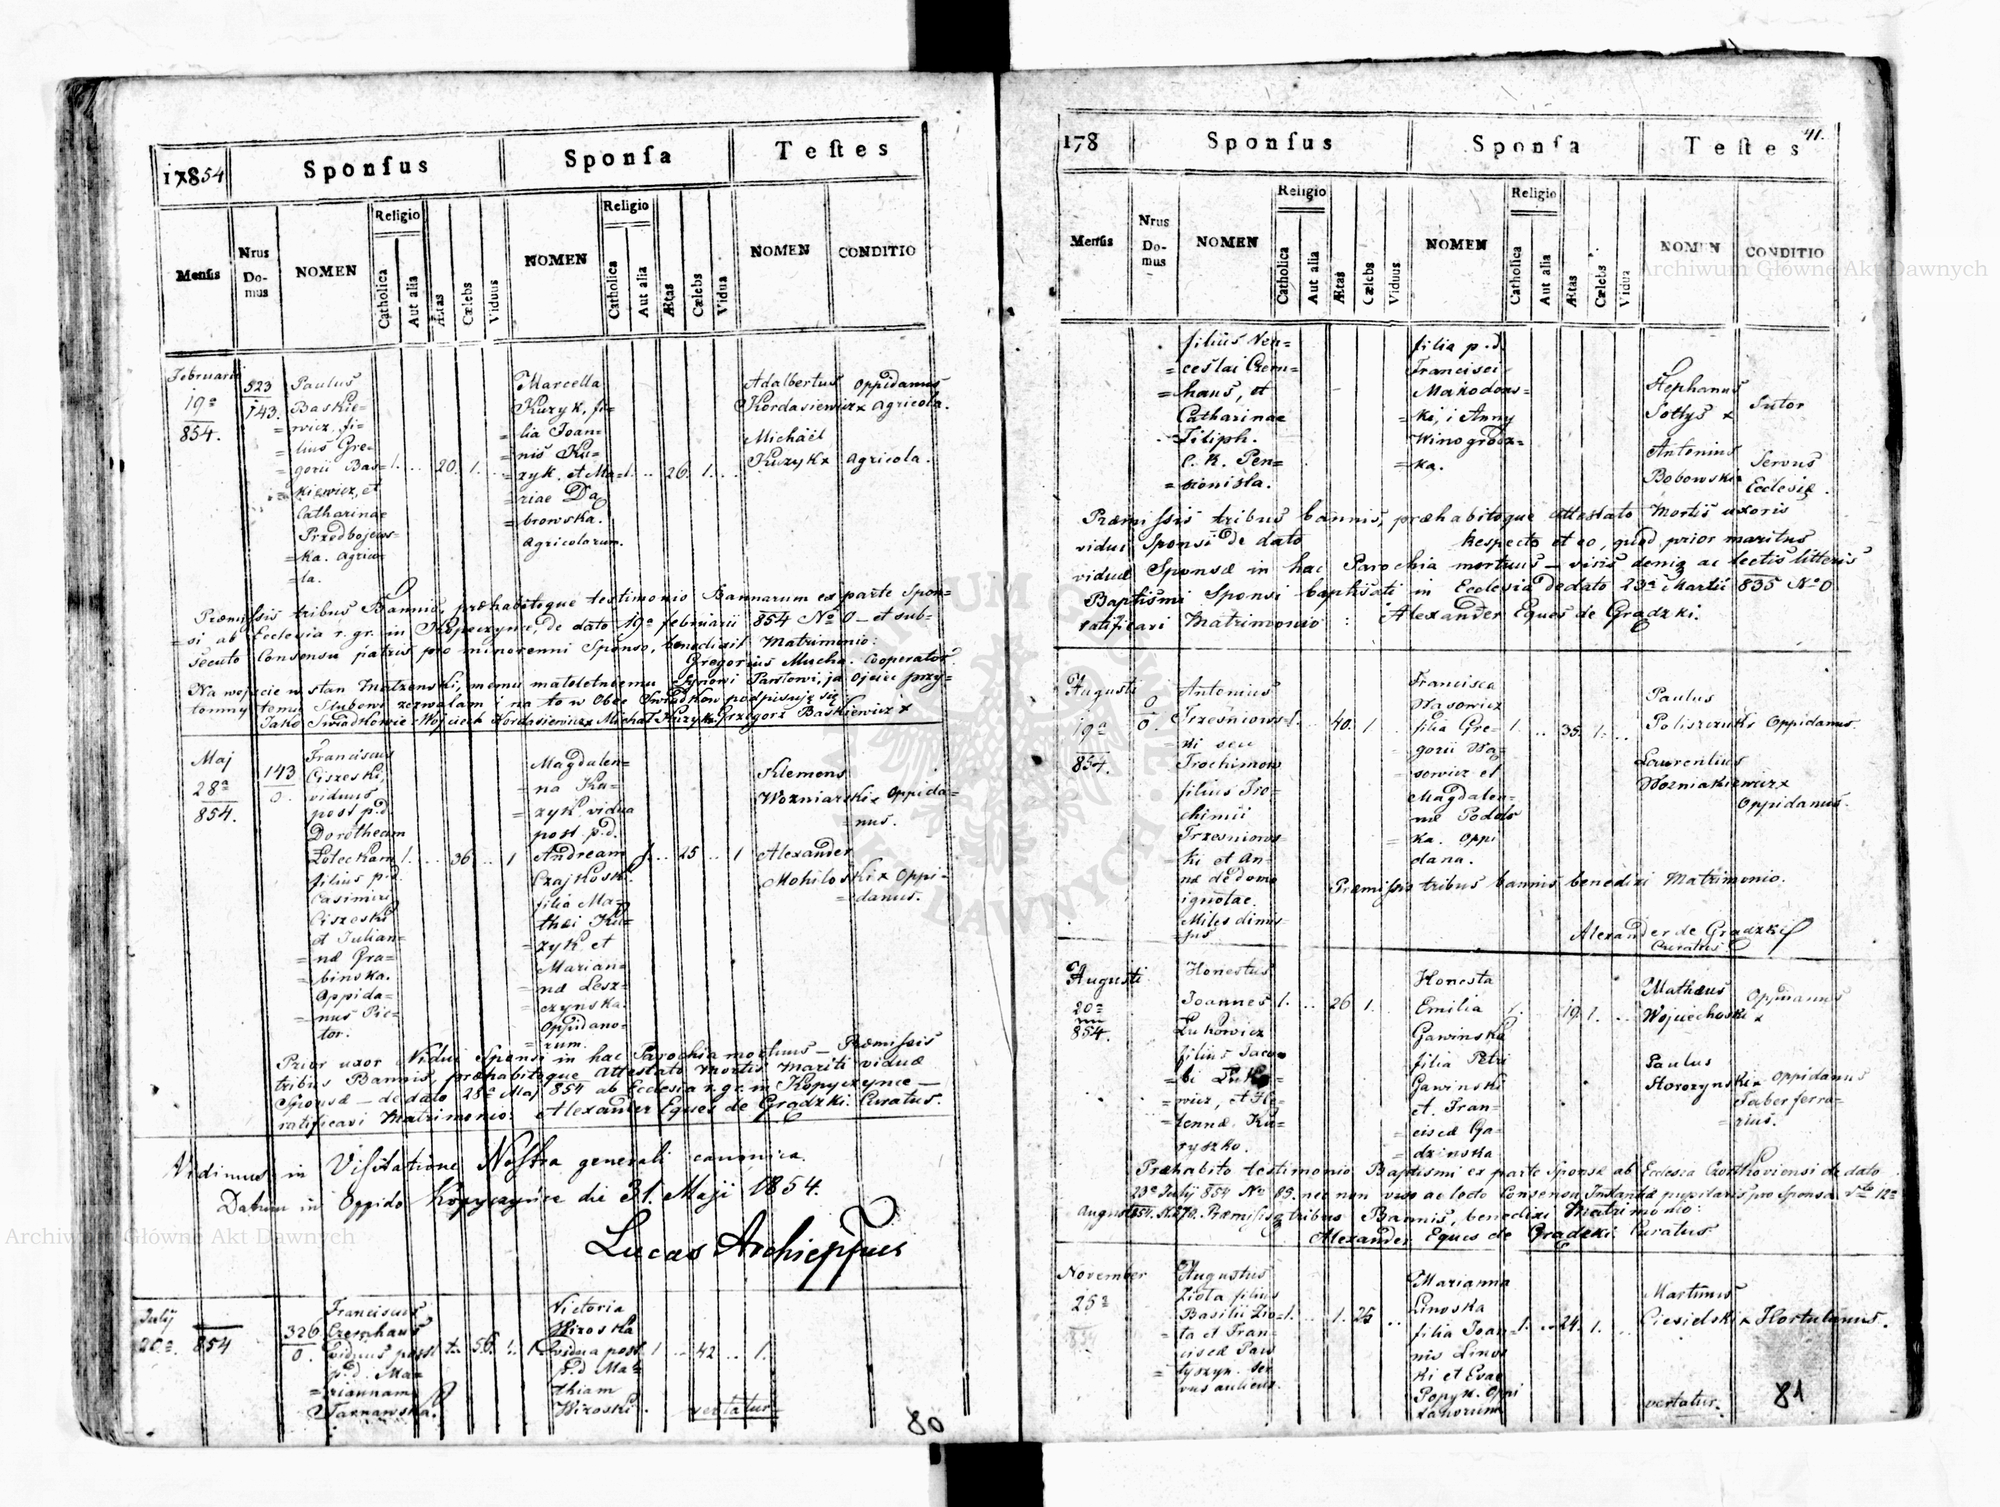 17854
Sponsus
Sponsa
Testes
Mensis
Nrus Domus
NOMEN
Religio
Catholica
Aut alia
Ætas
Cælebs
Viduus
NOMEN
Religio
Catholica
Aut alia
Ætas
Cælebs
Vidua
NOMEN
CONDITIO
Februarii
19a
854.
523
143.
Paulus
Baskie=
=wicz, fi=
=lius Gre=
=gorii Bas=
=kiewicz, et
Catharinae
Przedbojews=
=ka. Agrico=
=la.
1. .. 20. 1. ..
Marcella
Kuzyk, fi=
=lia Joan=
=nis Ku=
=zyk et Ma=
=riae Da
=browska.
Agricolarum.
1. .. 26. 1. ..
Adalbertus Oppidanus
Kordasiewicz x Agricola.
Michaël
Kuzyk x Agricola.
Præmissis tribus Bannis, præhabitoque testimonio Bannarum ex parte Spon=
=si ab Ecclesia r. gr. in Kopeczynce, de dato 19a februarii 854 No 0 – et sub=
secuto Consensu patris pro minorenni Sponso, benedixit Matrimonio:
Gregorius Mucha. Cooperator.
Na wejscie w stan Malzenski, memu maloletniemu Synowi Pawlowi, ja Ojciec przy=
tomny temu Slubowi zezwalam i na to w Obec Swiadkow podpisuję się
Jako Swiadkowie Wojciech Kordasiewicz x Michał Kuzyk x Grzegorz Baskiewicz x
Maj
28a
854.
143
0.
Franciscus
Ciszeski,
viduus
post p.d.
Dorotheam
Loteckam
filius p.d.
Casimiri
Ciszeski
et Julian=
=næ Gra=
=binska.
Oppida=
=nus Pic=
tor.
1. .. 36 .. 1
Magdalen=
=na Ku=
=zyk vidua
post p.d.
Andream
Czajkosk.
filia Ma=
thei Ku=
=zyk et
Marian=
=næ Lesz=
=czynska.
Oppidano=
=rum.
1. .. 25 .. 1
Klemens
Wozniarski x Oppida=
=nus.
Alexander
Mohiloski x Oppi=
=danus.
Prior uxor Vidui Sponsi in hac Parochia mortuus – Præmissis
tribus Bannis, præhabitoque Attestato Mortis Mariti viduæ
Sponsæ – de dato 28a Maj 854 ab Ecclesia r.g.c. in Kopyczynce –
ratificavi Matrimonio: Alexander Eques de Grądzki. Curatus.
Vidimus in Visitatione Nostra generali canonica.
Datum in Oppido Kopyczynce die 31. Maji 1854.
Lucas Archieppus
Julij
20a 854
326
0.
Franciscus
Czernhaus
viduus post
p.d. Ma=
=riannam
Tarnawska.
1. .. 56. .. 1
Victoria
Wizoska
vidua post
p.d. Ma=
thiam
Wizoski.
1 .. 42 .. 1.
vertatur
80
178
Sponsus
Sponsa
Testes
41.
Mensis
Nrus Domus
NOMEN
Religio
Catholica
Aut alia
Ætas
Cælebs
Viduus
NOMEN
Religio
Catholica
Aut alia
Ætas
Cælebs
Vidua
NOMEN
CONDITIO
filius Ven=
=ceslai Czern=
=haus, et
Catharinae
Filiph.
C. K. Pen=
=sionista.
filia p.d.
Francisci
Makodons=
=ki, i Anny
Winogrodz=
=ka.
Stephanus
Soltys x Sutor
Antonius Servus
Bobowski x Ecclesiæ.
Præmissis tribus bannis, præhabitoque Attestato Mortis uxoris
vidui Sponsi de dato Respecto et eo, quod prior maritus
viduæ Sponsæ in hac Parochia mortuus – visis deniq ac lectis litteris
Baptismi Sponsi baptisati in Ecclesia de dato 23a Martii 835 No 0
ratificavi Matrimonio : Alexander Eques de Grądzki.
Augusti
19a
854.
0
0.
Antonius
Trzesniows=
=ki seu
Trochimow
filius Tro=
chimii
Trzesniows=
=ki et An=
næ de domo
ignotae.
Miles dimis=
=sus
1. .. 40. 1. ..
Francisca
Wasowicz
filia Gre=
=gorii Wa=
=sowicz et
Magdalen=
=næ Podols
=ka. Oppi
dana.
1. .. 35. 1. ..
Paulus
Poliszczuk x Oppidanus.
Laurentius
Wozniakiewicz x
Oppidanus.
Præmissis tribus bannis benedixi Matrimonio.
Alexander de Grądzki
Curatus
Augusti
20a
854.
Honestus
Joannes
Lukowicz
filius Jaco=
=bi Luko=
=wicz, et He=
=lennæ Ku=
ryszko.
1. .. 26 1. ..
Honesta
Emilia
Gawinska
filia Petri
Gawinski
et Fran=
=ciscæ Ga=
=dzinska
1. .. 19. 1. ..
Mathæus Oppidanus
Wojciechoski x
Paulus
Horozynski x Oppidanus
Faber ferra=
=rius.
Præhabito testimonio Baptismi ex parte Sponsæ ab Ecclesia Czortkoviensi de dato
23a Julij 854 No 85. nec non viso ac lecto Consensu Instantiæ pupilaris pro Sponsa dto 12a
Augusti 854. N. 270. Præmissisq tribus Bannis, benedixi Matrimonio:
Alexander Eques de Grądzki. Curatus
November
25a
854
Augustus
Ziola filius
Basilii Zio=
=la et Fran=
ciscæ Paw
=lyszyn. Ser
vus aulicus.
1. .. 1. 25 ..
Marianna
Linoska
filia Joan=
nis Linos
ki et Evae
Popyk. Oppi
danorum
1. .. 24. 1. ..
Martinus
Ciesielski x Hortulanus.
vertatur.
81
Archiwum Główne Akt Dawnych
Archiwum Główne Akt Dawnych
ARCHIWUM GŁÓWNE AKT DAWNYCH